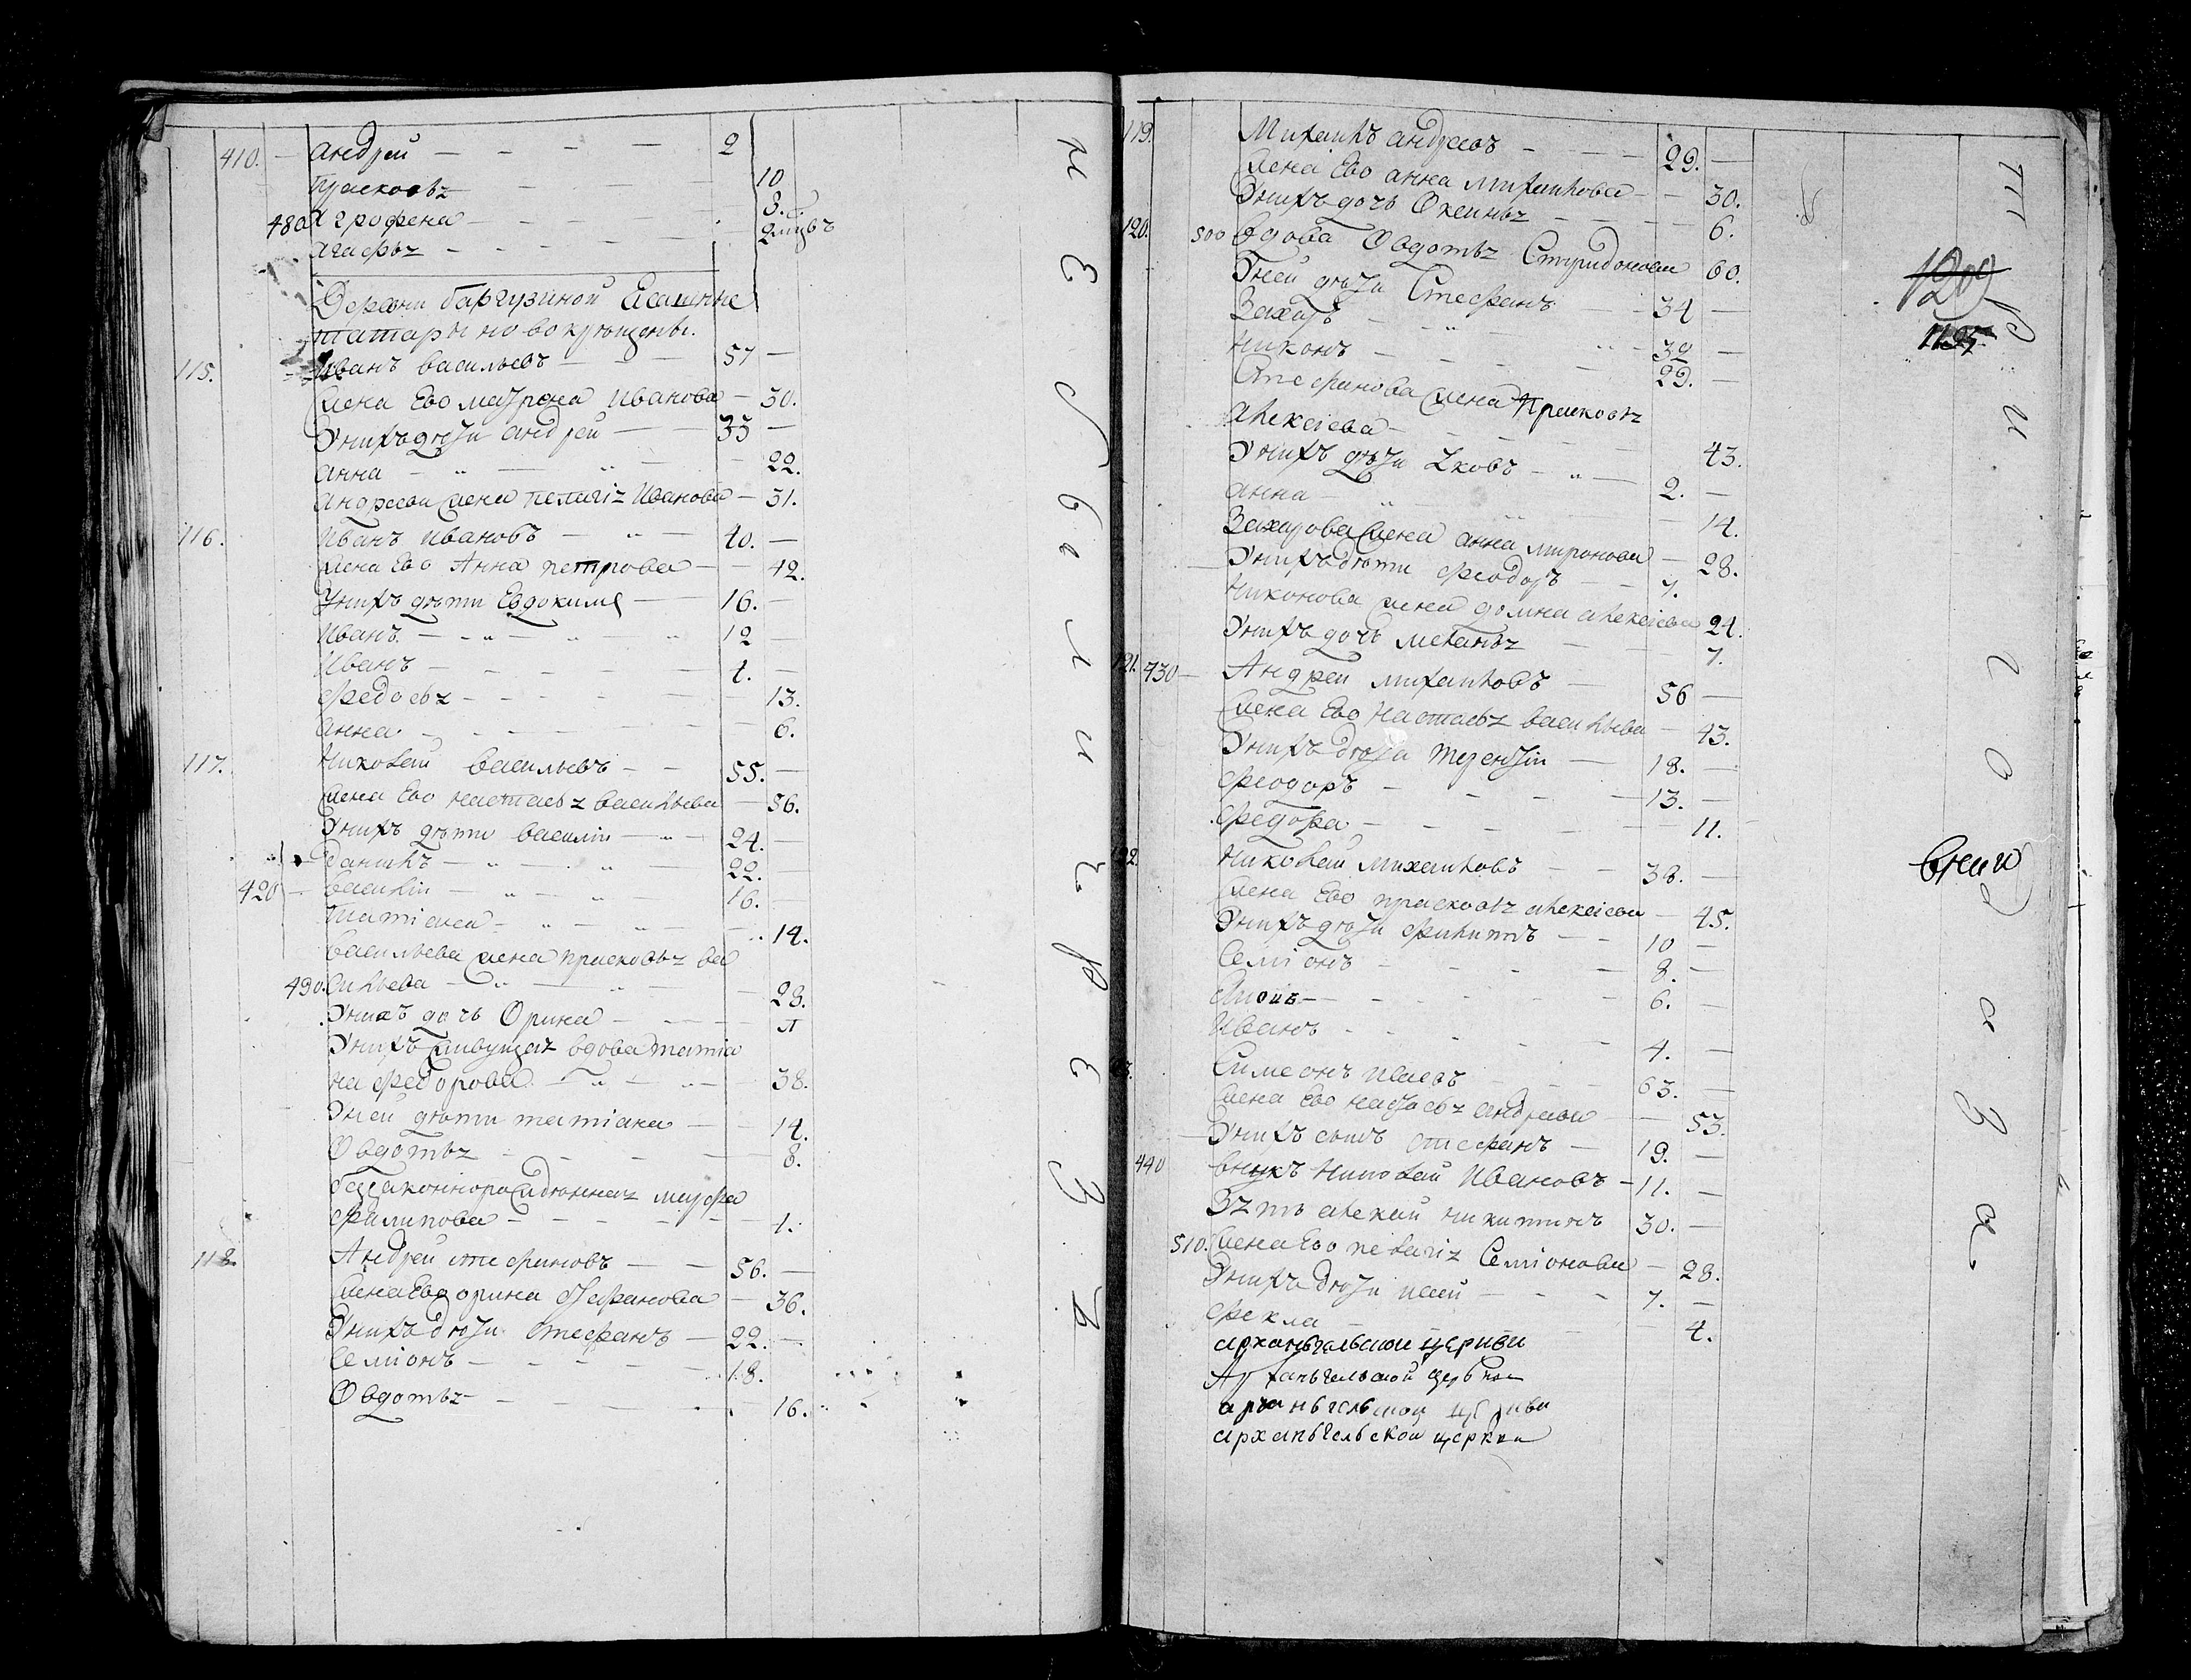 410. Андрей 2
Прасковья 10
480 Агрофена 3.
Агафья 2 мцвъ
Деревни Баргузиной Ясашные
татары новокрещены.
115. Иванъ васильевъ 57
жена Ево матрона Иванова 30.
У нихъ дѣти андрей 33
анна 22.
андреева жена пелагія Иванова 31.
116. Иванъ Ивановъ 40.
жена Ево Анна петрова 42.
У нихъ дѣти Евдокимъ 16.
Иванъ 12
Иванъ 1.
Федосья 13.
анна 6.
117. Николай васильевъ 55.
жена Ево настасья васильева 56.
У нихъ дѣти василій 24.
данилъ 22.
420 василій 16.
татіана 14.
васильева жена прасковья ва
490. сильева 28.
У нихъ дочь Орина
У нихъ живущая вдова татіа
на федорова 38.
У ней дѣти татіана 14.
Овдотья 8.
беззаконнорожденная марфа
филипова 1.
118. Андрей стефановъ 56.
жена Ево орина стефанова 36.
У нихъ дѣти стефанъ 22.
Семіонъ 18.
Овдотья 16.
119. Михаилъ андреевъ 29.
жена Ево анна михаилова 30.
У нихъ дочь Оксинья 6.
120. 500 вдова Овдотья Спиридонова 60.
У ней дѣти Стефанъ 34
Захаръ 32
никонъ 29.
Стефанова жена Прасковья
алексіева 43.
У нихъ дѣти яковъ 2.
анна 14.
Захарова жена анна миронова 28.
У нихъ дѣти феодоръ 7.
никонова жена домна алексіева 24.
У нихъ дочь меланья 7.
121. 430 Андрей михаиловъ 56
жена Ево настасья васильева 43.
У нихъ дѣти терентій 18.
феодоръ 13.
федора 11.
122. николай михаиловъ 38.
жена Ево прасковья алексіева 45.
У нихъ дѣти филипъ 10
Семіонъ 8.
6.
Иванъ 4.
Симеонъ исаевъ 63.
жена Ево настасья андреева 53.
У нихъ сынъ стефанъ 19.
440 внукъ николай Ивановъ 11.
Зять алексій никитинъ 30.
510. жена Ево пелагія Семіонова 28.
У нихъ дѣти исай 7.
фекла 4.
архангальской церкви
Архангельской церкви
архангельской церкви
архангельской церкви
1209
1195